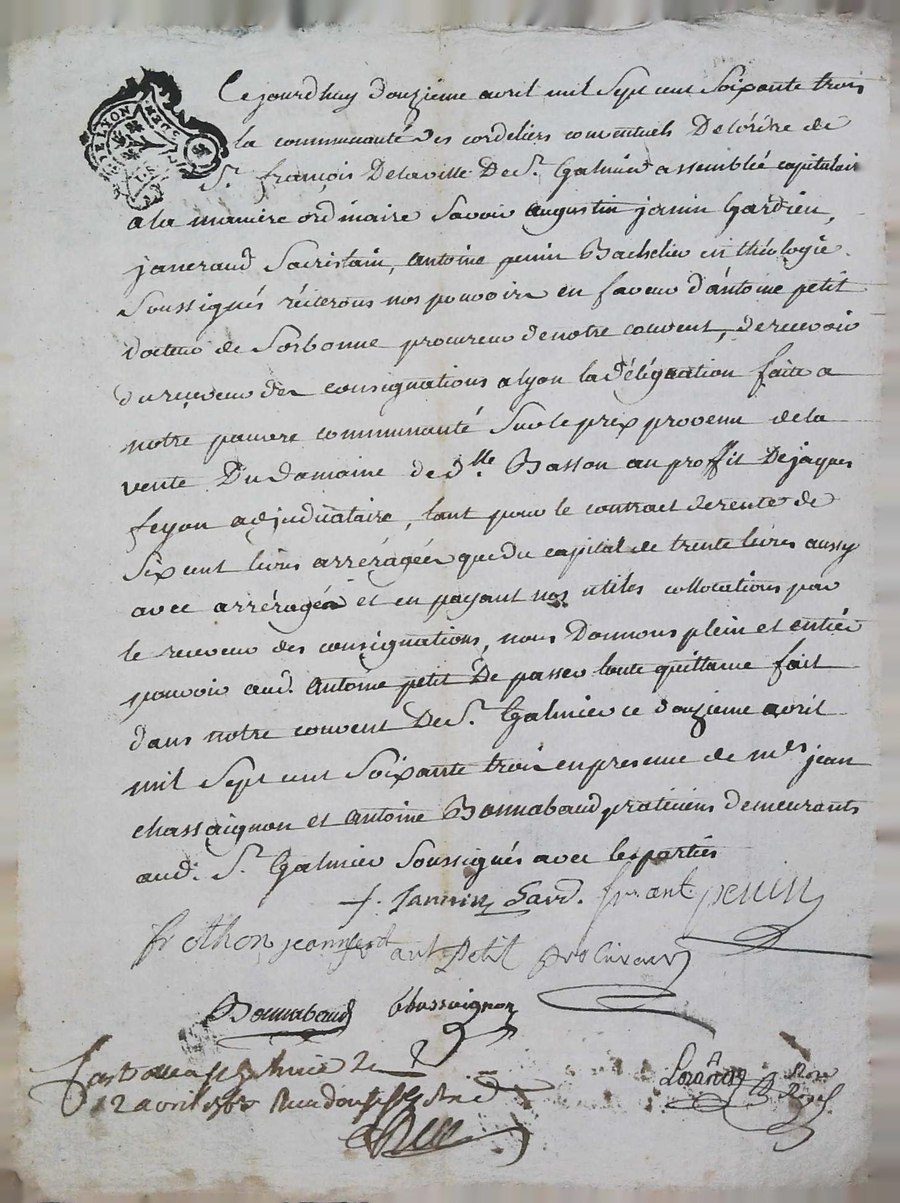 DE LYON
Ce jourdhuy douzieme avril mil Sept cent Soixante trois
la communauté des cordeliers conventuels De lordre de
St. françois De la ville De St. Galmier assemblée capitulair
a la maniere ordinaire Savoir augustin janin Gardien,
janeraud Sacristain, antoine penin Bachelier en théologie
Soussignés réiterons nos pouvoirs en faveur d'antoine petit
docteur de Sorbonne procureur de notre couvent, de recevoir
du receveur des consignations a lyon la délégation faite a
notre pauvre communauté Sur le prix provenu de la
vente Du domaine de dlle. Basson au proffit De jaques
feyon adjudicataire, tant pour le contract de rente de
Six cent livres arréragées que du capital de trente livres aussy
avec arrérages et en payant nos utiles collocations par
le receveur des consignations, nous Donnons plein et entier
pouvoir aud. antoine petit De passer toute quittance fait
dans notre couvent De St. Galmier ce douzieme avril
mil Sept cent Soixante trois en presence de mes jean
chassaignon et antoine Bonnabaud praticiens demeurants
aud. St. Galmier Soussignés avec les parties
f. Jannin Gard. fr. ant penin
fr othon ant Petit procureur
Bonnabaud Chassaignon
12 avril